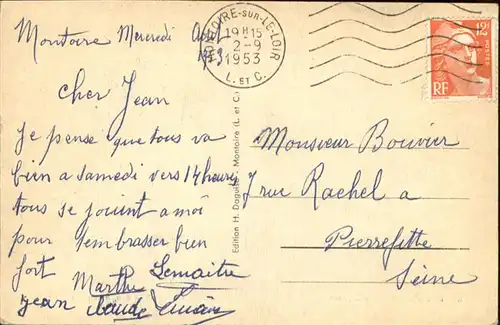 Montoire Mercredi Août
1953
MONTOIRE-SUR-LE-LOIR
19H15
2-9
1953
L. ET C.
12F
POSTES
RF
Cher Jean
Je pense que tous va
bien a samedi vers 14 heures
tous se joint a moi
pour tembrasser bien
fort Marthe Lemaitre
Jean Claude
Edition H. Daguet, Montoire (L. et C.)
Monsieur Bouvier
7 rue Rachel a
Pierrefitte
Seine